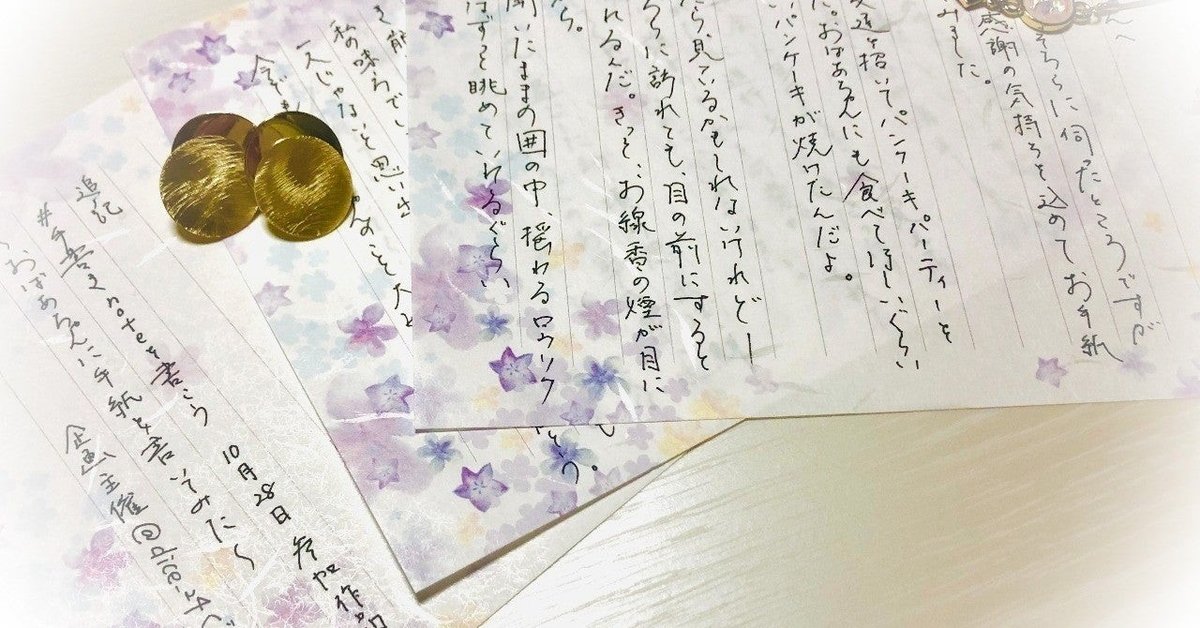 んへ
そちらに伺ったところですが
感謝の気持ちを込めてお手紙
みました。
友達を招いてパンケーキパーティーを
た。おばあちゃんにも食べてほしいぐらい
いパンケーキが焼けたんだよ。
たら、見ているかもしれないけれどー
ちらに訪れても、目の前にすると
れるんだ。きっと、お線香の煙が目に
ら。
開いたままの囲の中、揺れるロウソク
はずっと眺めていられるぐらい
私の味方でい
一人じゃないと思い出さ
今でも
なこと大
追記
#手書きnoteを書こう 10月28日参加作品
おばあちゃんに手紙を書いてみたら
企画主催@dice-24